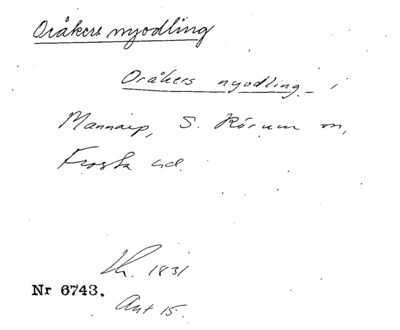 Oråkers nyodling
Oråkers nyodling i
Mannarp, S. Rörum sn,
Frosta hd.
Lh. 1831
Nr 6743.
Akt 15.